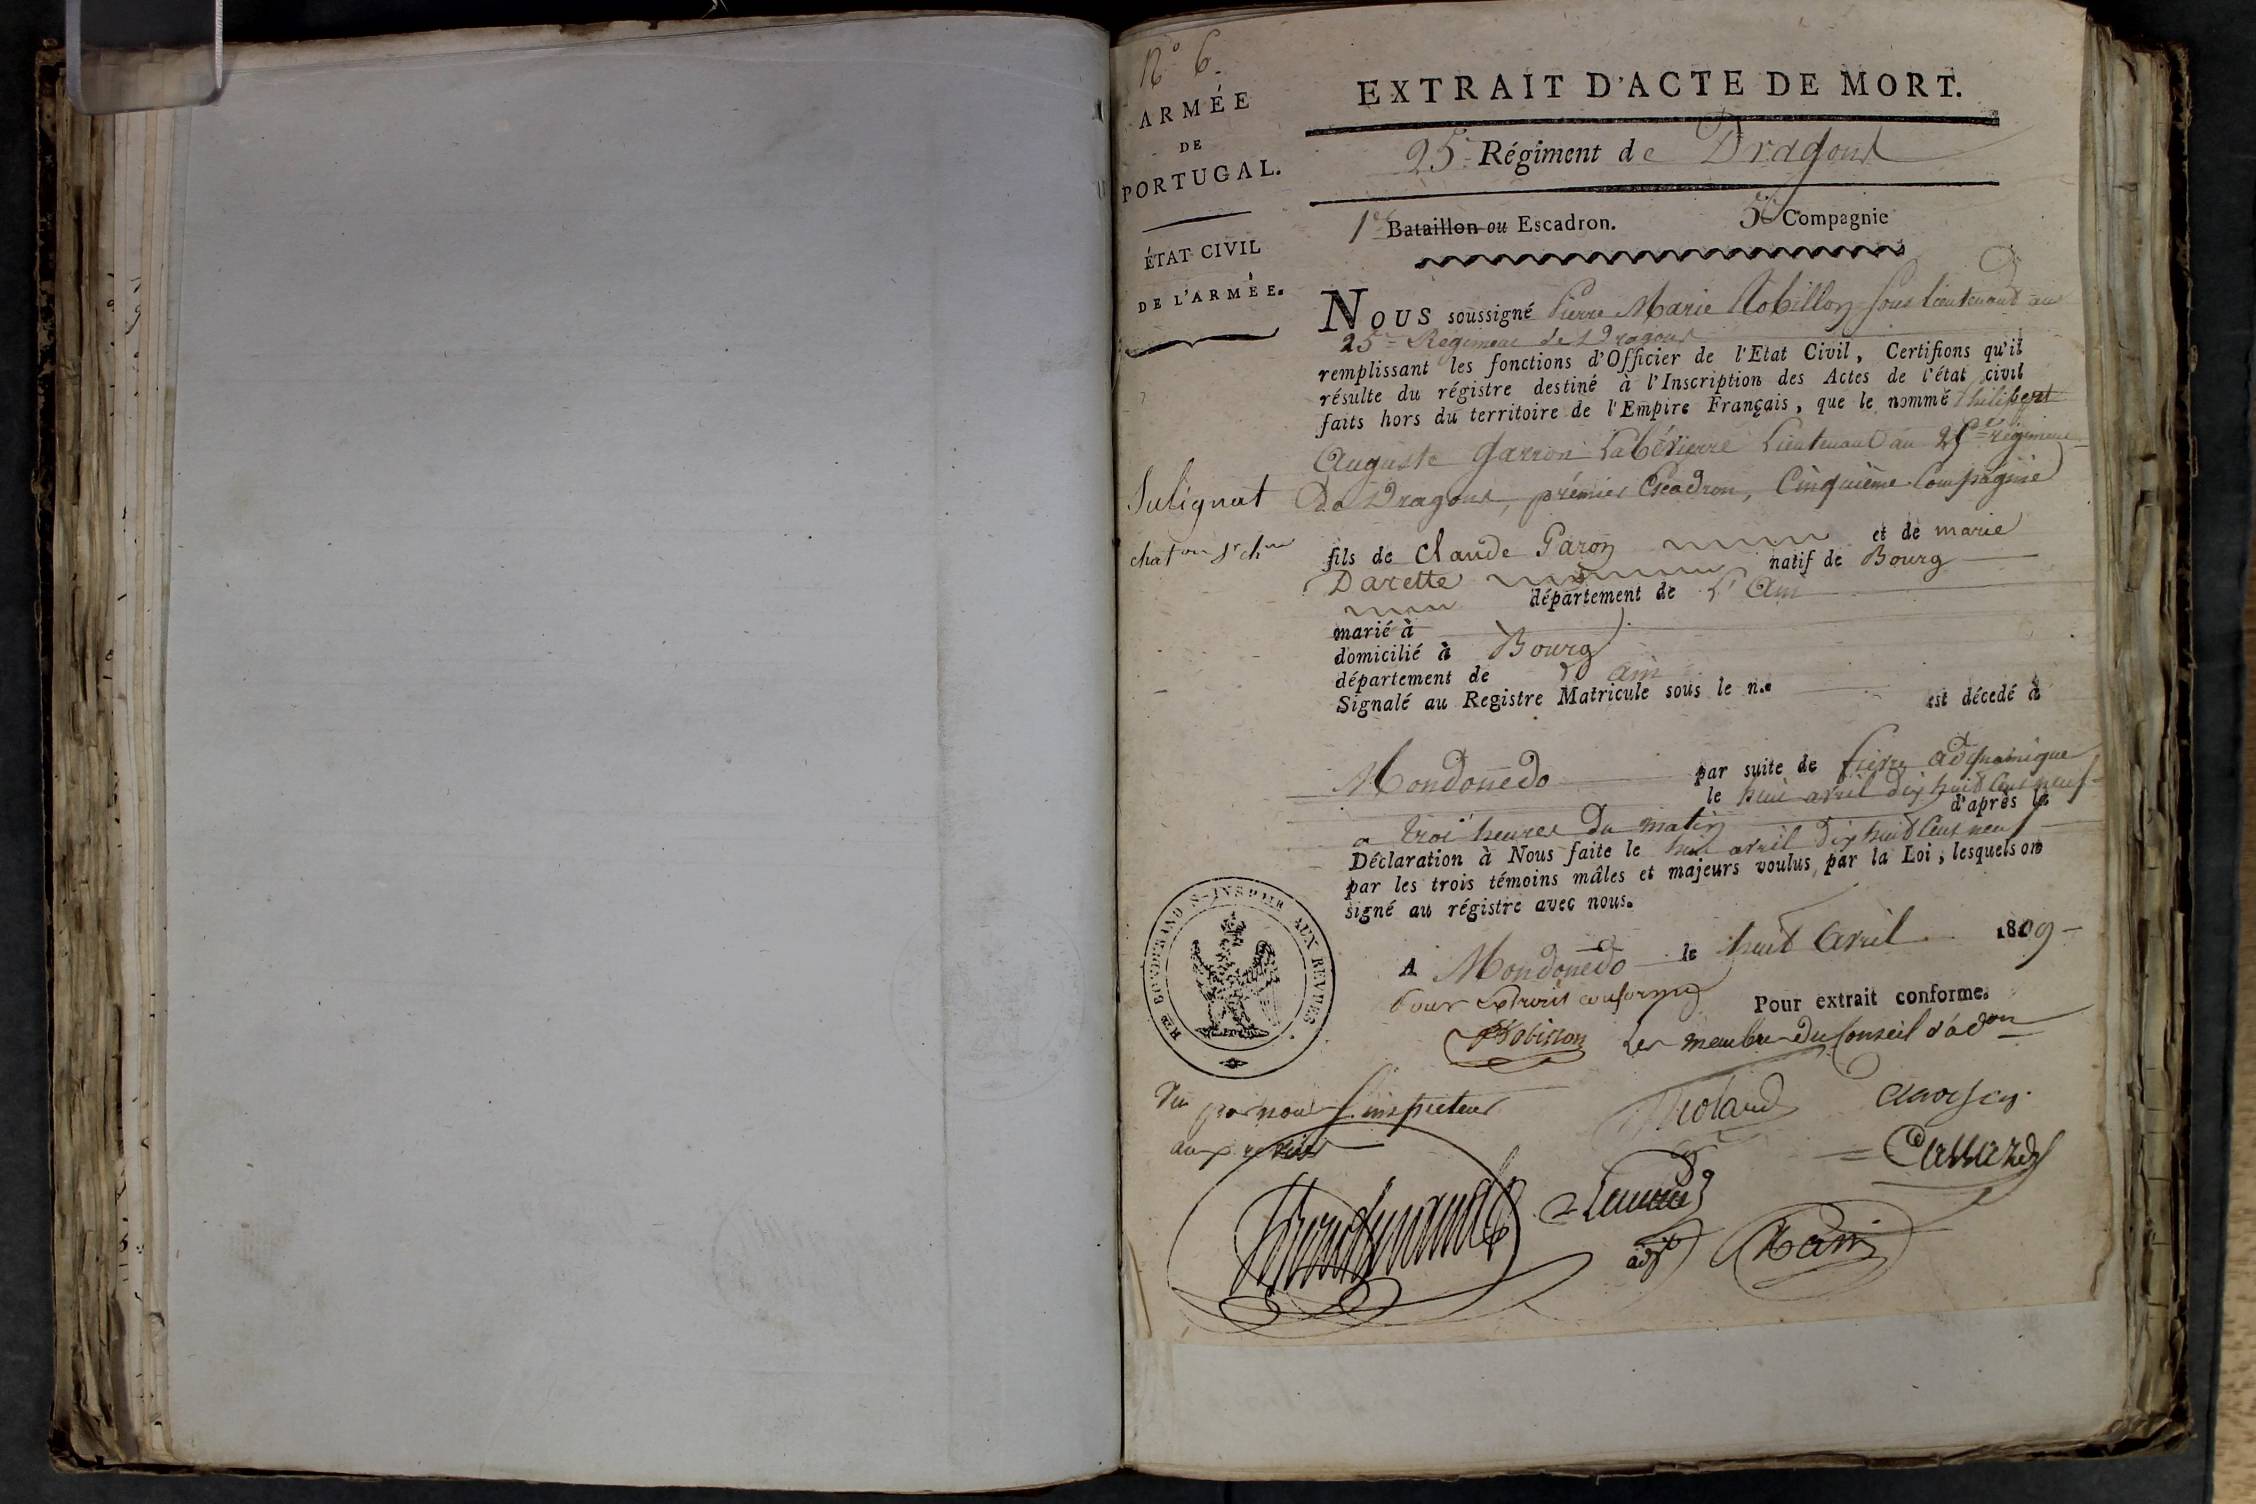 N° 6.
ARMÉE
DE
PORTUGAL.
ÉTAT CIVIL
DE L'ARMÉE.
Sulignat
chat.on sr ch.ne
EXTRAIT D'ACTE DE MORT.
25e Régiment de Dragons
1er Bataillon ou Escadron. 5e Compagnie
NOUS soussigné Pierre Marie Robillon Sous Lieutenant au
25e Régiment de Dragons
remplissant les fonctions d'Officier de l'Etat Civil, Certifions qu'il
résulte du régistre destiné à l'Inscription des Actes de l'état civil
faits hors du territoire de l'Empire Français, que le nommé Philibert
Auguste Garron Labévierre Lieutenant au 25e régiment
De Dragons, prémier Escadron, Cinquième Compagnie
fils de Claude Garon et de marie
Darette natif de Bourg
département de L'Ain
marié à
domicilié à Bourg
département de L'ain
Signalé au Registre Matricule sous le n.o est décedé à
Mondonedo par suite de fievre adynamique
le huit avril dix huit Cent neuf
a trois heures du matin d'après la
Déclaration à Nous faite le huit avril dix huit Cent neuf
par les trois témoins mâles et majeurs voulus par la Loi, lesquels on
signé au régistre avec nous.
A Mondonedo le huit Avril 1809
Pour Extrait conforme Pour extrait conforme.
Robillon Les membres du Conseil d'adon
BONDURAND S-INSPteur AUX REVUES
Vu par nous S. inspecteur
aux revues
Cassard
adjt